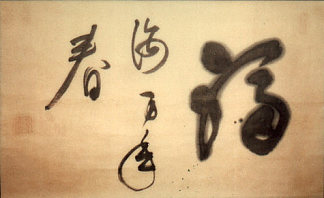 福
海万年
春